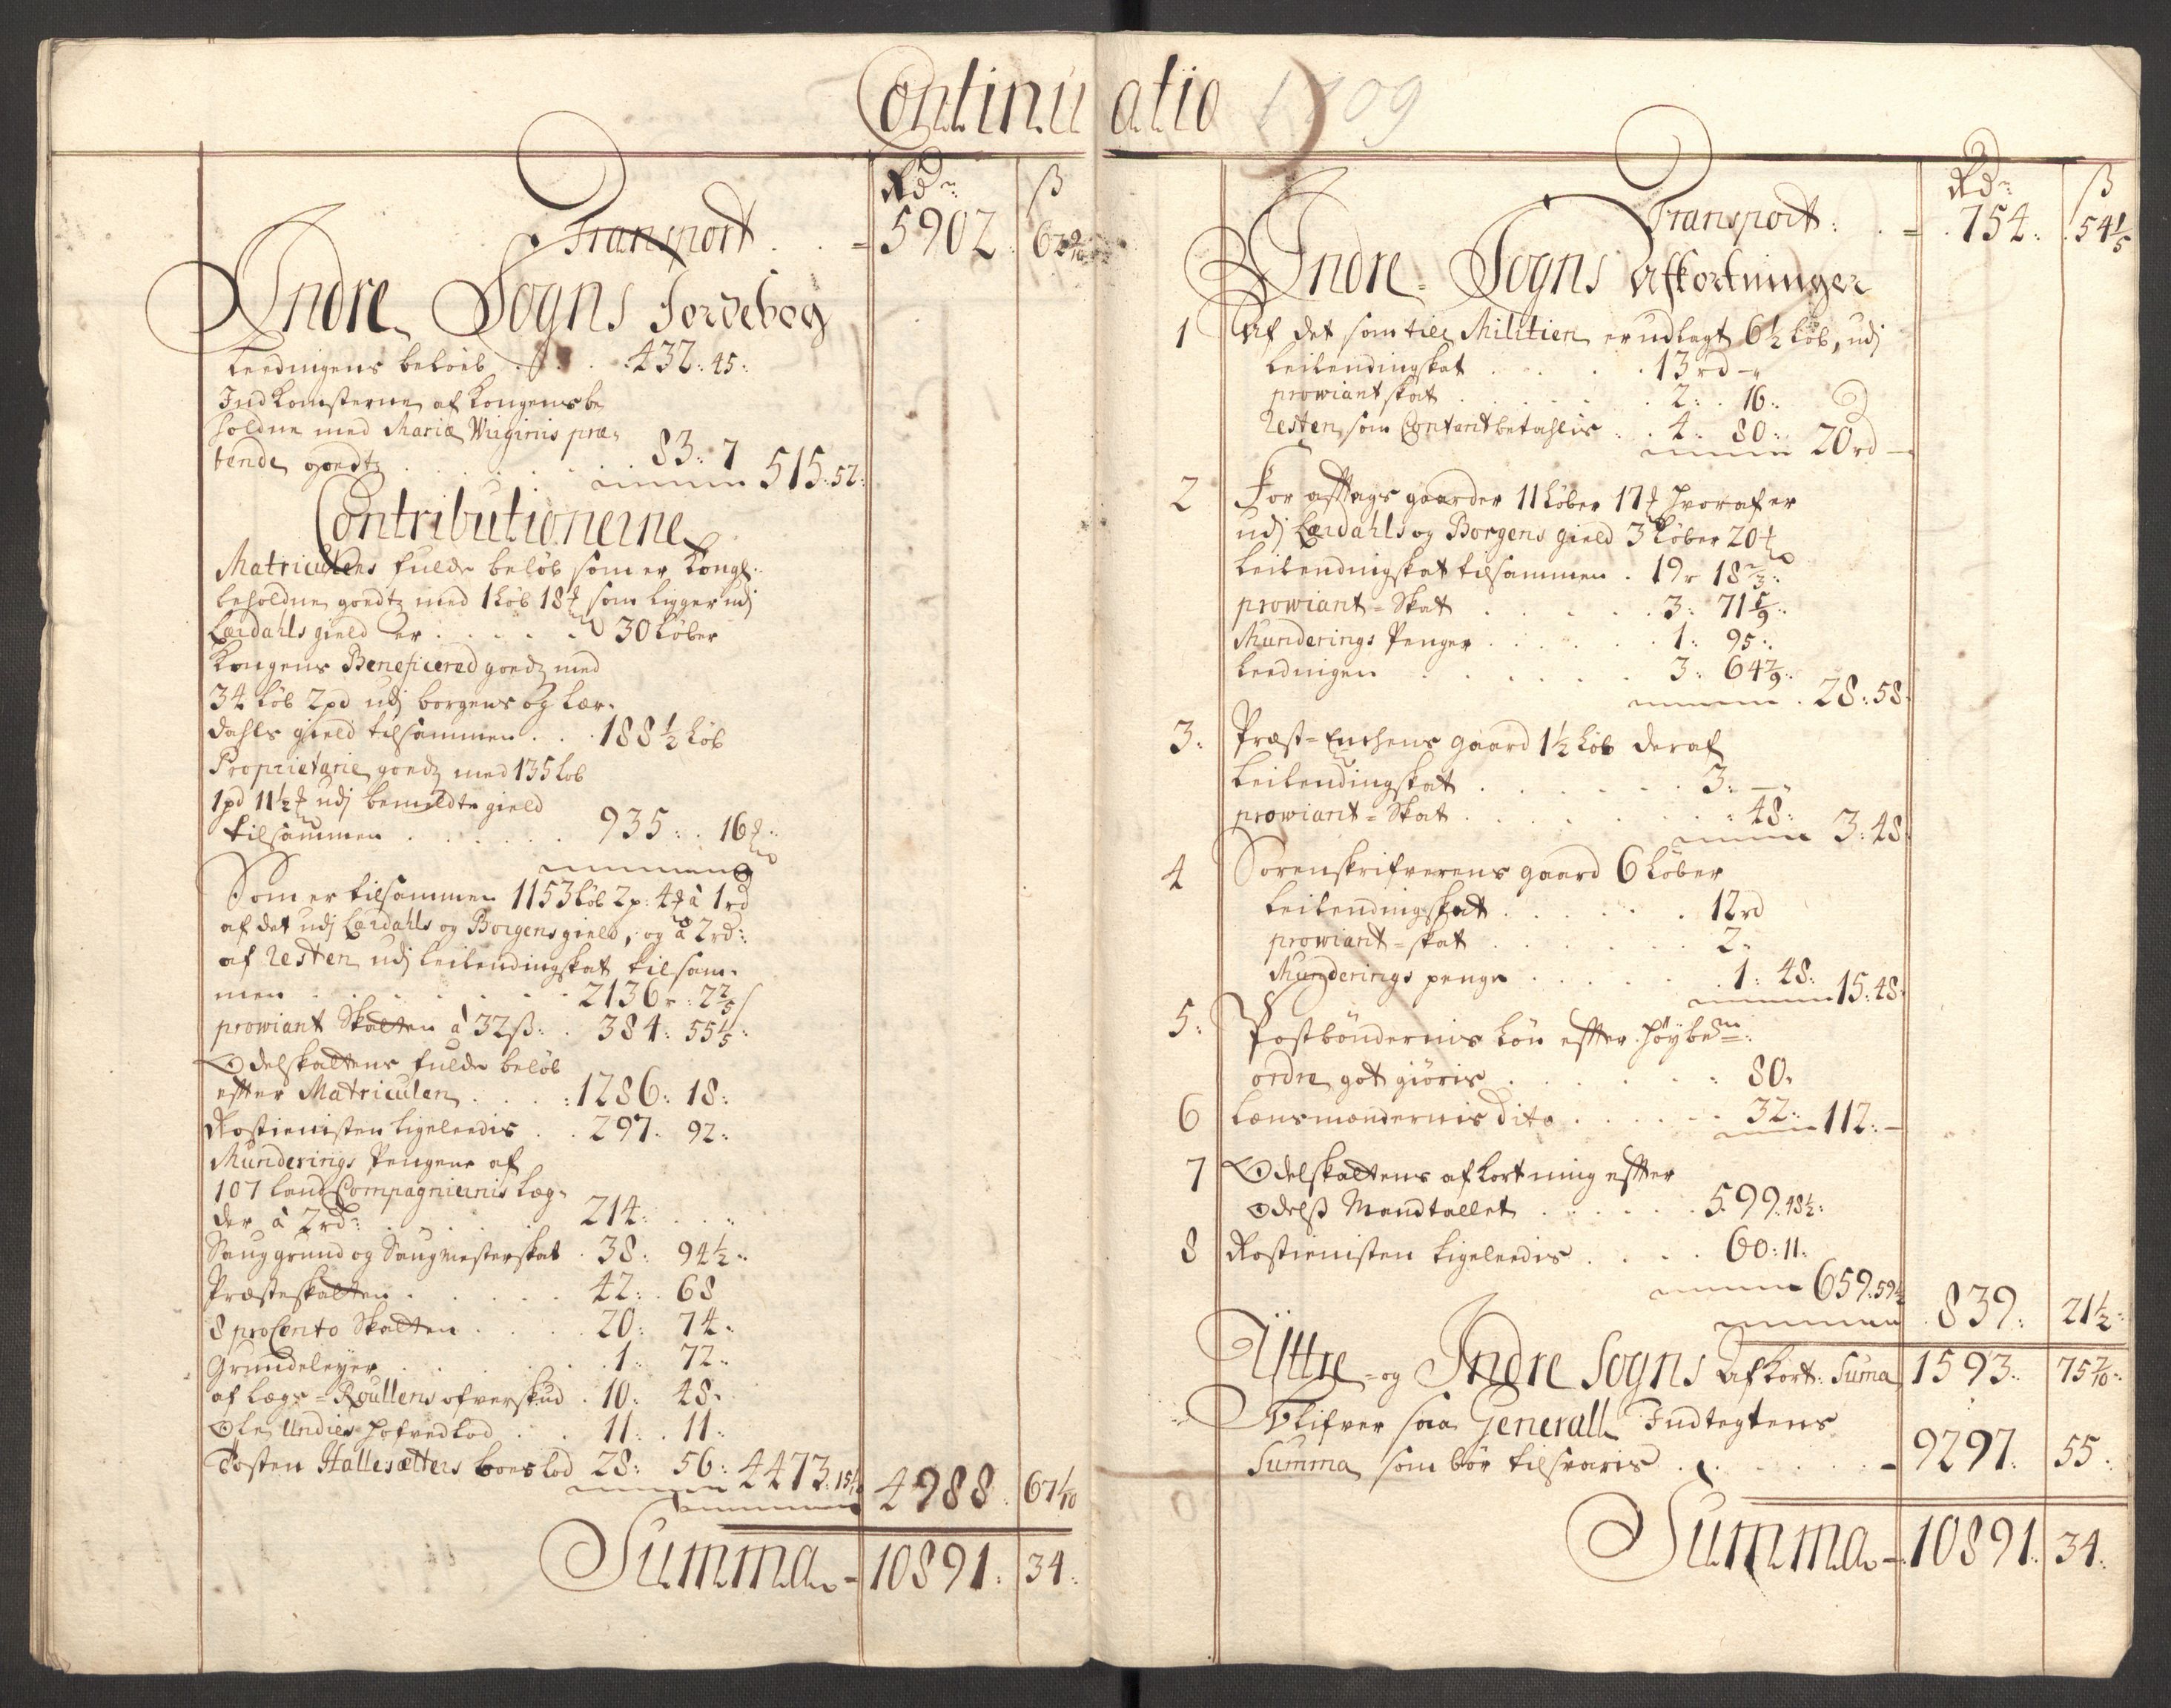 Continuatio 1709
Rdr ß
Transport . . = 5902 62 9/10
Indre Sogns Jordebog
Leedingens beløeb . . . 432: 45:
Indkomsterne af Kongens be
holdne med Mariæ Wirginis præ-
bende goedtz . . . . . 83: 7 515: 52:
Contributionerne
Matriculens fulde beløb som er Kongl:
beholdne goedtz med 1 Løb 18 ₰ som ligger udj
Lærdahls gield er . . . . . 30 Løber
Kongens Beneficered goedz med
34 Løb 2 pd udj borgens og Lær-
dahls gield tilsammen . . . 188 1/2 Løb
Proprietarie goedz med 135 Løb
1 pd 11 1/2 ₰ udj bemeldte gield
tilsammen . . . . . . 935: . 16 ₰:
Som er tilsammen 1153 Løb 2 p: 4 ₰ à 1 rd
af det udj Lærdahls og Borgens gield, og à 2 rd:
af Resten udj Leilendingskat tilsam-
men . . . . . . 2136 r: 2 2/5 ß
prowiant Skatten à 32 ß: . 384: 55 1/5:
Odelskattens fulde beløb
effter Matriculen . . . . 1286: 18:
Rostienisten ligeleedis . . 297: 92:
Munderings Pengene af
107 land Compagniernis Læg-
der à 2 rd: . . . . . 214: . . .
Saug grund og Saugmesterskat . 38: 94 1/2:
Præsteskatten . . . . . 42: . 68
8 procento Skatten . . . . 20: 74:
Grundeleyer . . . . . . 1: 72:
af Lægs-Roullens ofverskud . 10: 48:
Ole Undies Hofved Lod . . 11: . 11:
Tosten Hallesætters boeslod 28: 56: 4473: 15 1/10
4988: 67 1/10
Summa - 10891: 34:
Rdr ß
Transport: . = 754: 54 1/5
Indre Sogns Afkortninger
1 Af det som till Militien er udlagt 6 1/2 Løb, udj
Leilendingskat . . . . 13 rd -
prowiantskat . . . . . 2: . 16:
Resten som Contant betahlis . . 4: 80: 20 rd -
2 For afftags gaarder 11 Løber 17 ₰ hvoraf er
udj Lærdahls og Borgens gield 3 Løber 20 ₰
Leilendingskat tilsammen . 19 r 18 2/3:
prowiant-Skat . . . . . 3: 71 5/9:
Munderings Penger . . . . . 1: 95:
Leedingen . . . . . . 3: 64 7/9:
28: 58:
3: Præst-Enchens gaard 1 1/2 Løb deraf
Leilendingskat . . . . . . 3: -
prowiant-Skat . . . . . . 48: 3: 48
4 Sorenskrifverens gaard 6 Løber
Leilendingskat . . . . . . 12 rd
prowiant-skat . . . . . . 2:
Munderings penge . . . . . 1: 48: 15: 48:
5: Postbøndernis Løn effter høybemte:
ordre got giøris . . . . . . 80:
6 Lensmændernis dito . . . . . 32: 112: -
7 Odelskattens afkortning effter
Odelss Mandtallet . . . . . 599: 48 1/2:
8 Rostienisten ligeleedis . . . . 60: 11:
659: 59 1/2
839: 21 1/2:
Yttre- og Indre Sogns Afkort: Suma 1593: 75 7/10:
Blifver saa Generall Indtegtens
Summa som bør tilsvaris . . . . . = 9297: 55:
Summa - 10891: 34: